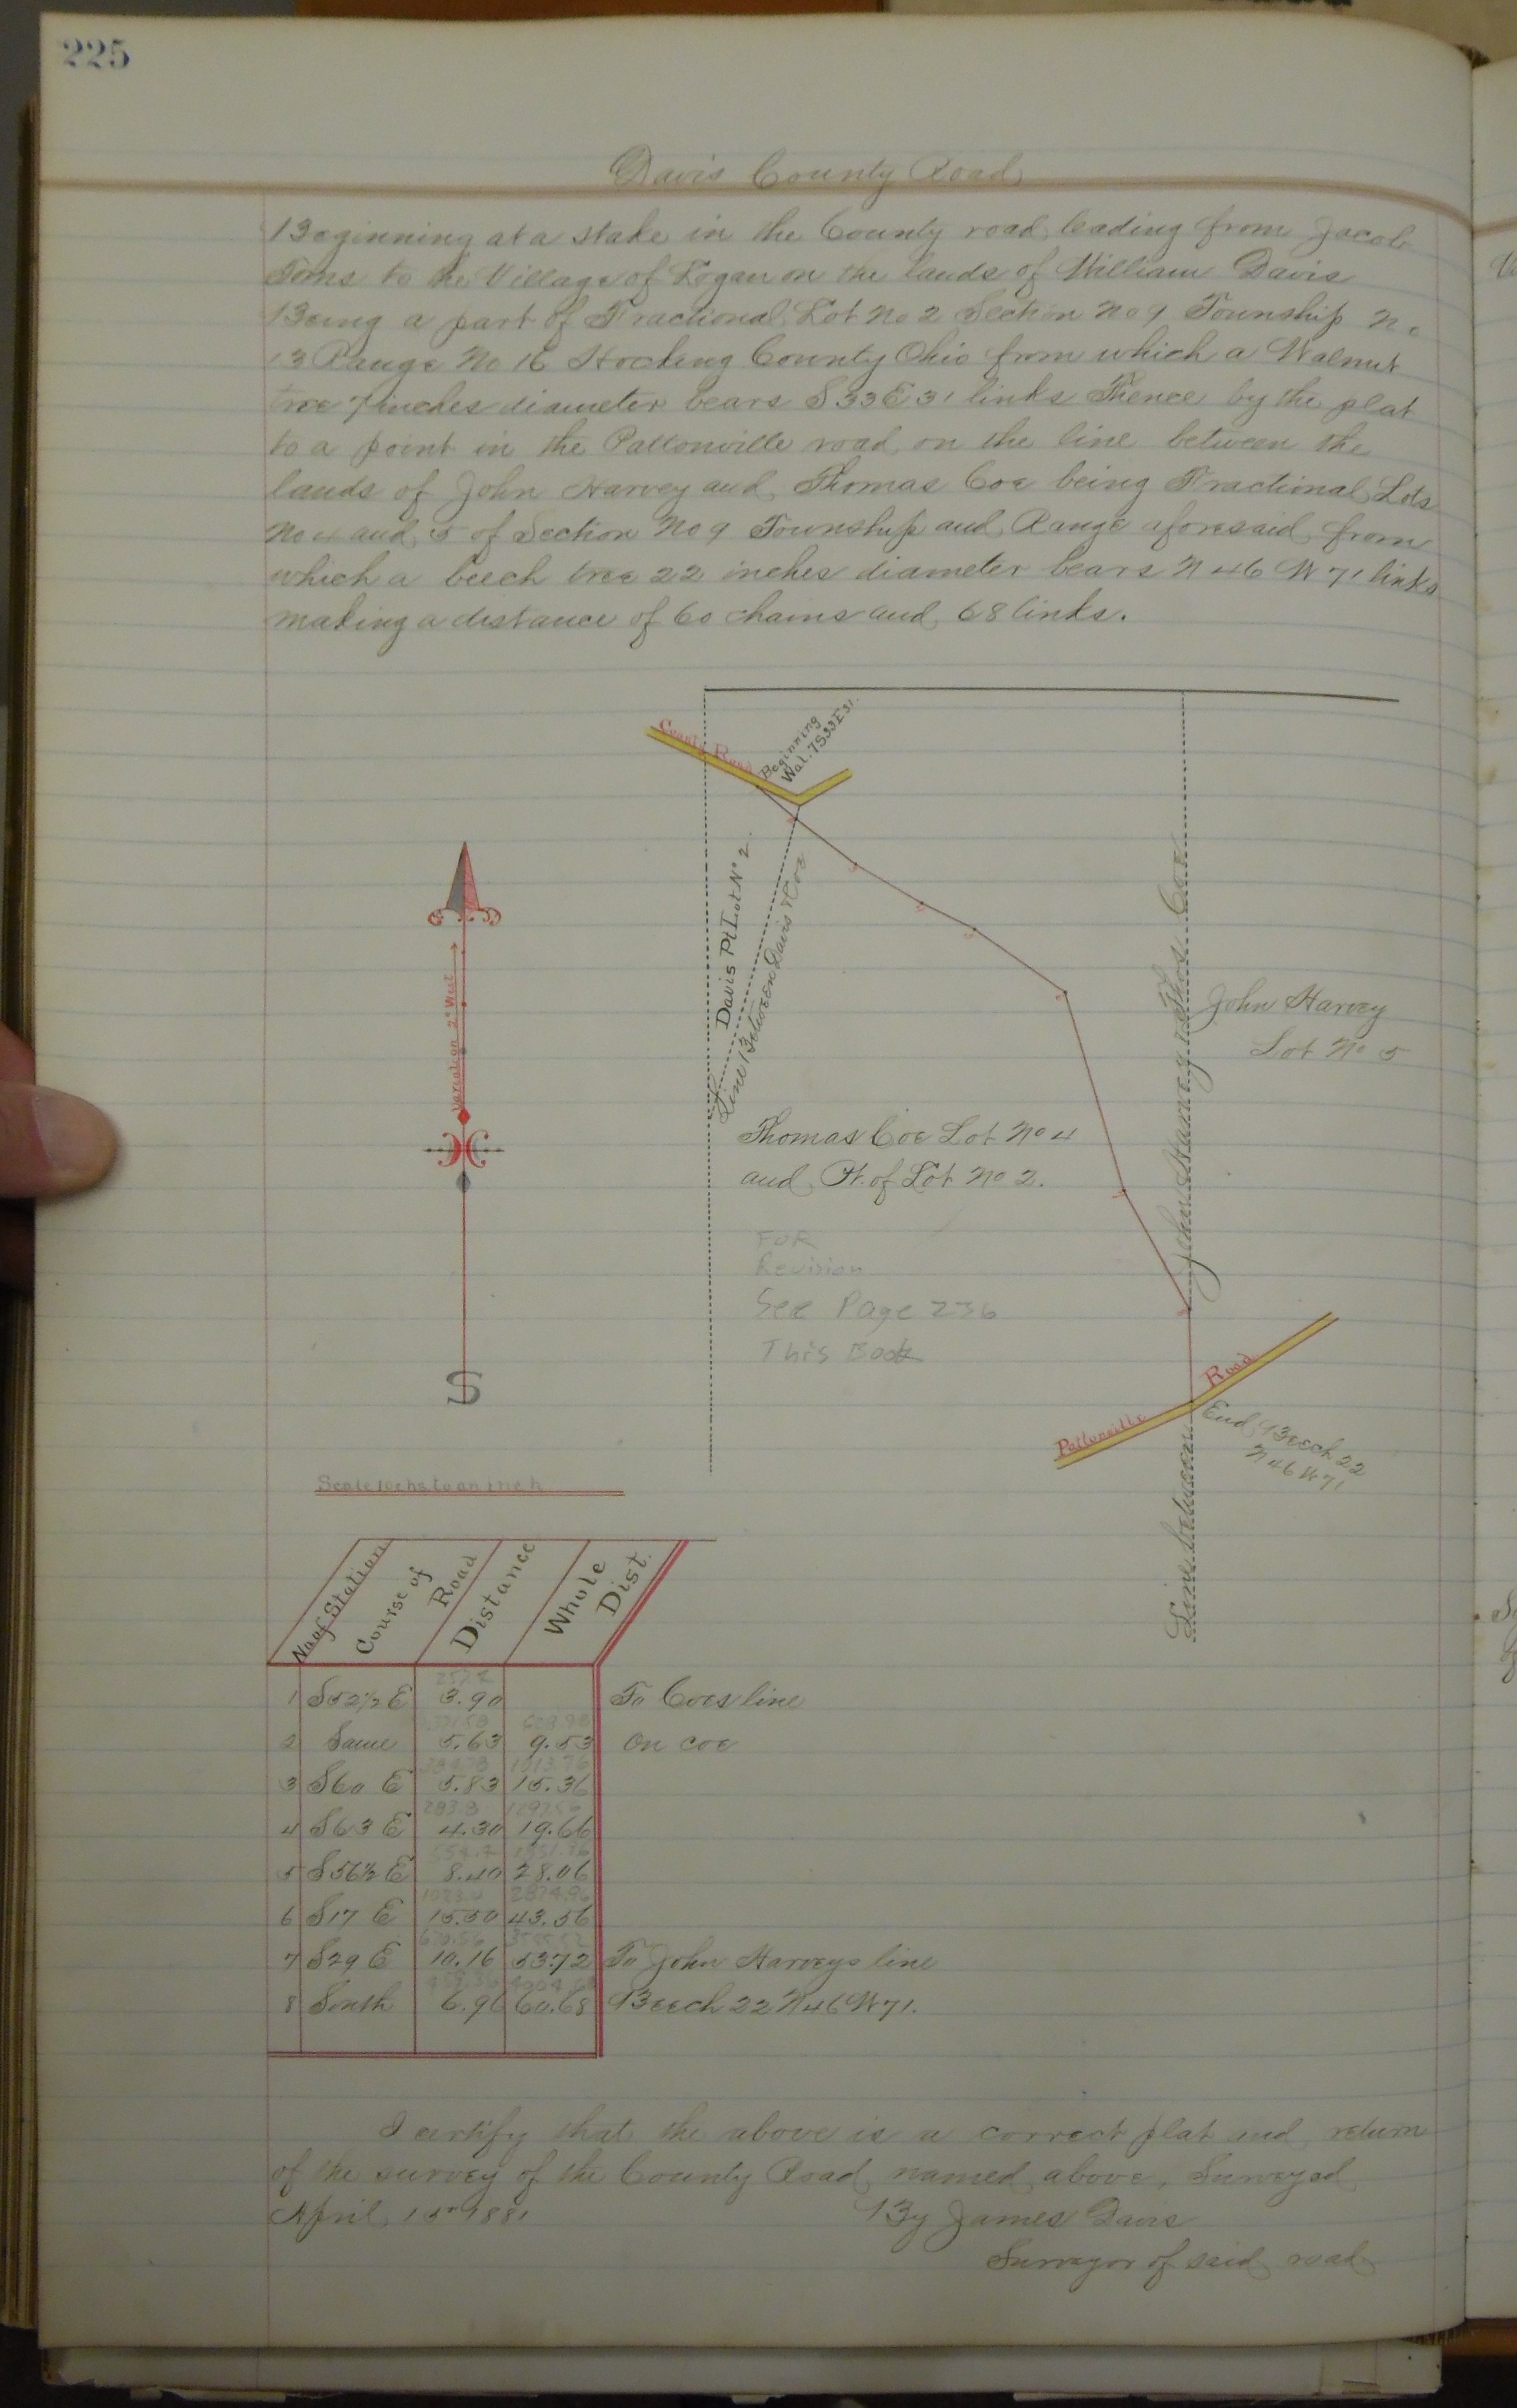 225
Davis County Road
Beginning at a stake in the County road leading from Jacob
to the Village of Logan on the lands of William Davis
Being a part of Fractional Lot No 2 Section No 9 Township No
13 Range No 16 Hocking County Ohio from which a Walnut
tree 7 inches diameter bears S 33 E 31 links Thence by the plat
to a point in the Pattonville road on the line between the
lands of John Harvey and Thomas Coe being Fractional Lots
No 4 and 5 of Section No 9 Township and Range aforesaid from
which a beech tree 22 inches diameter bears N 46 W 71 links
making a distance of 60 chains and 68 links.
County Road
Beginning
Wal. 7 S33E31.
Davis Pt Lot No 2.
Line Between Davis & Coe
Variation 2° West
S
John Harvey
Lot No 5
Thomas Coe Lot No 4
and Pt. of Lot No 2.
For
Revision
See Page 236
This Book
Line between John Harvey & Thos. Coe
Pattonville Road
End Beech 22
N 46 W 71
Scale 10 chs. to an inch
No of Station
Course of Road
Distance
Whole Dist.
257.4
1 S52½ E 3.90 To Coes line
371.58 628.98
2 Same 5.63 9.53 On Coe
384.78 1013.76
3 S60 E 5.83 15.36
283.8 1297.56
4 S63 E 4.30 19.66
554.4 1851.96
5 S56½ E 8.40 28.06
1023.0 2874.96
6 S17 E 15.50 43.56
670.56 3545.52
7 S29 E 10.16 53.72 To John Harveys line
459.36 4004.88
8 South 6.96 60.68 Beech 22 N46 W71.
I certify that the above is a correct plat and return
of the survey of the County Road named above, Surveyed
April 1881 By James Davis
Surveyor of said road